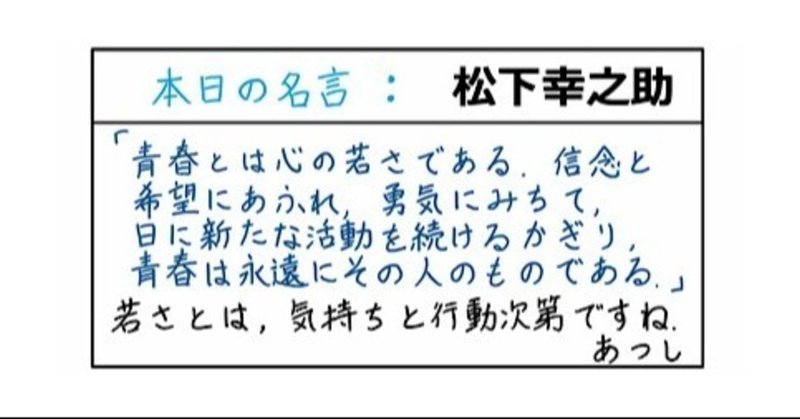 本日の名言： 松下幸之助
「青春とは心の若さである. 信念と
希望にあふれ, 勇気にみちて,
日に新たな活動を続けるかぎり,
青春は永遠にその人のものである.」
若さとは, 気持ちと行動次第ですね.
あつし